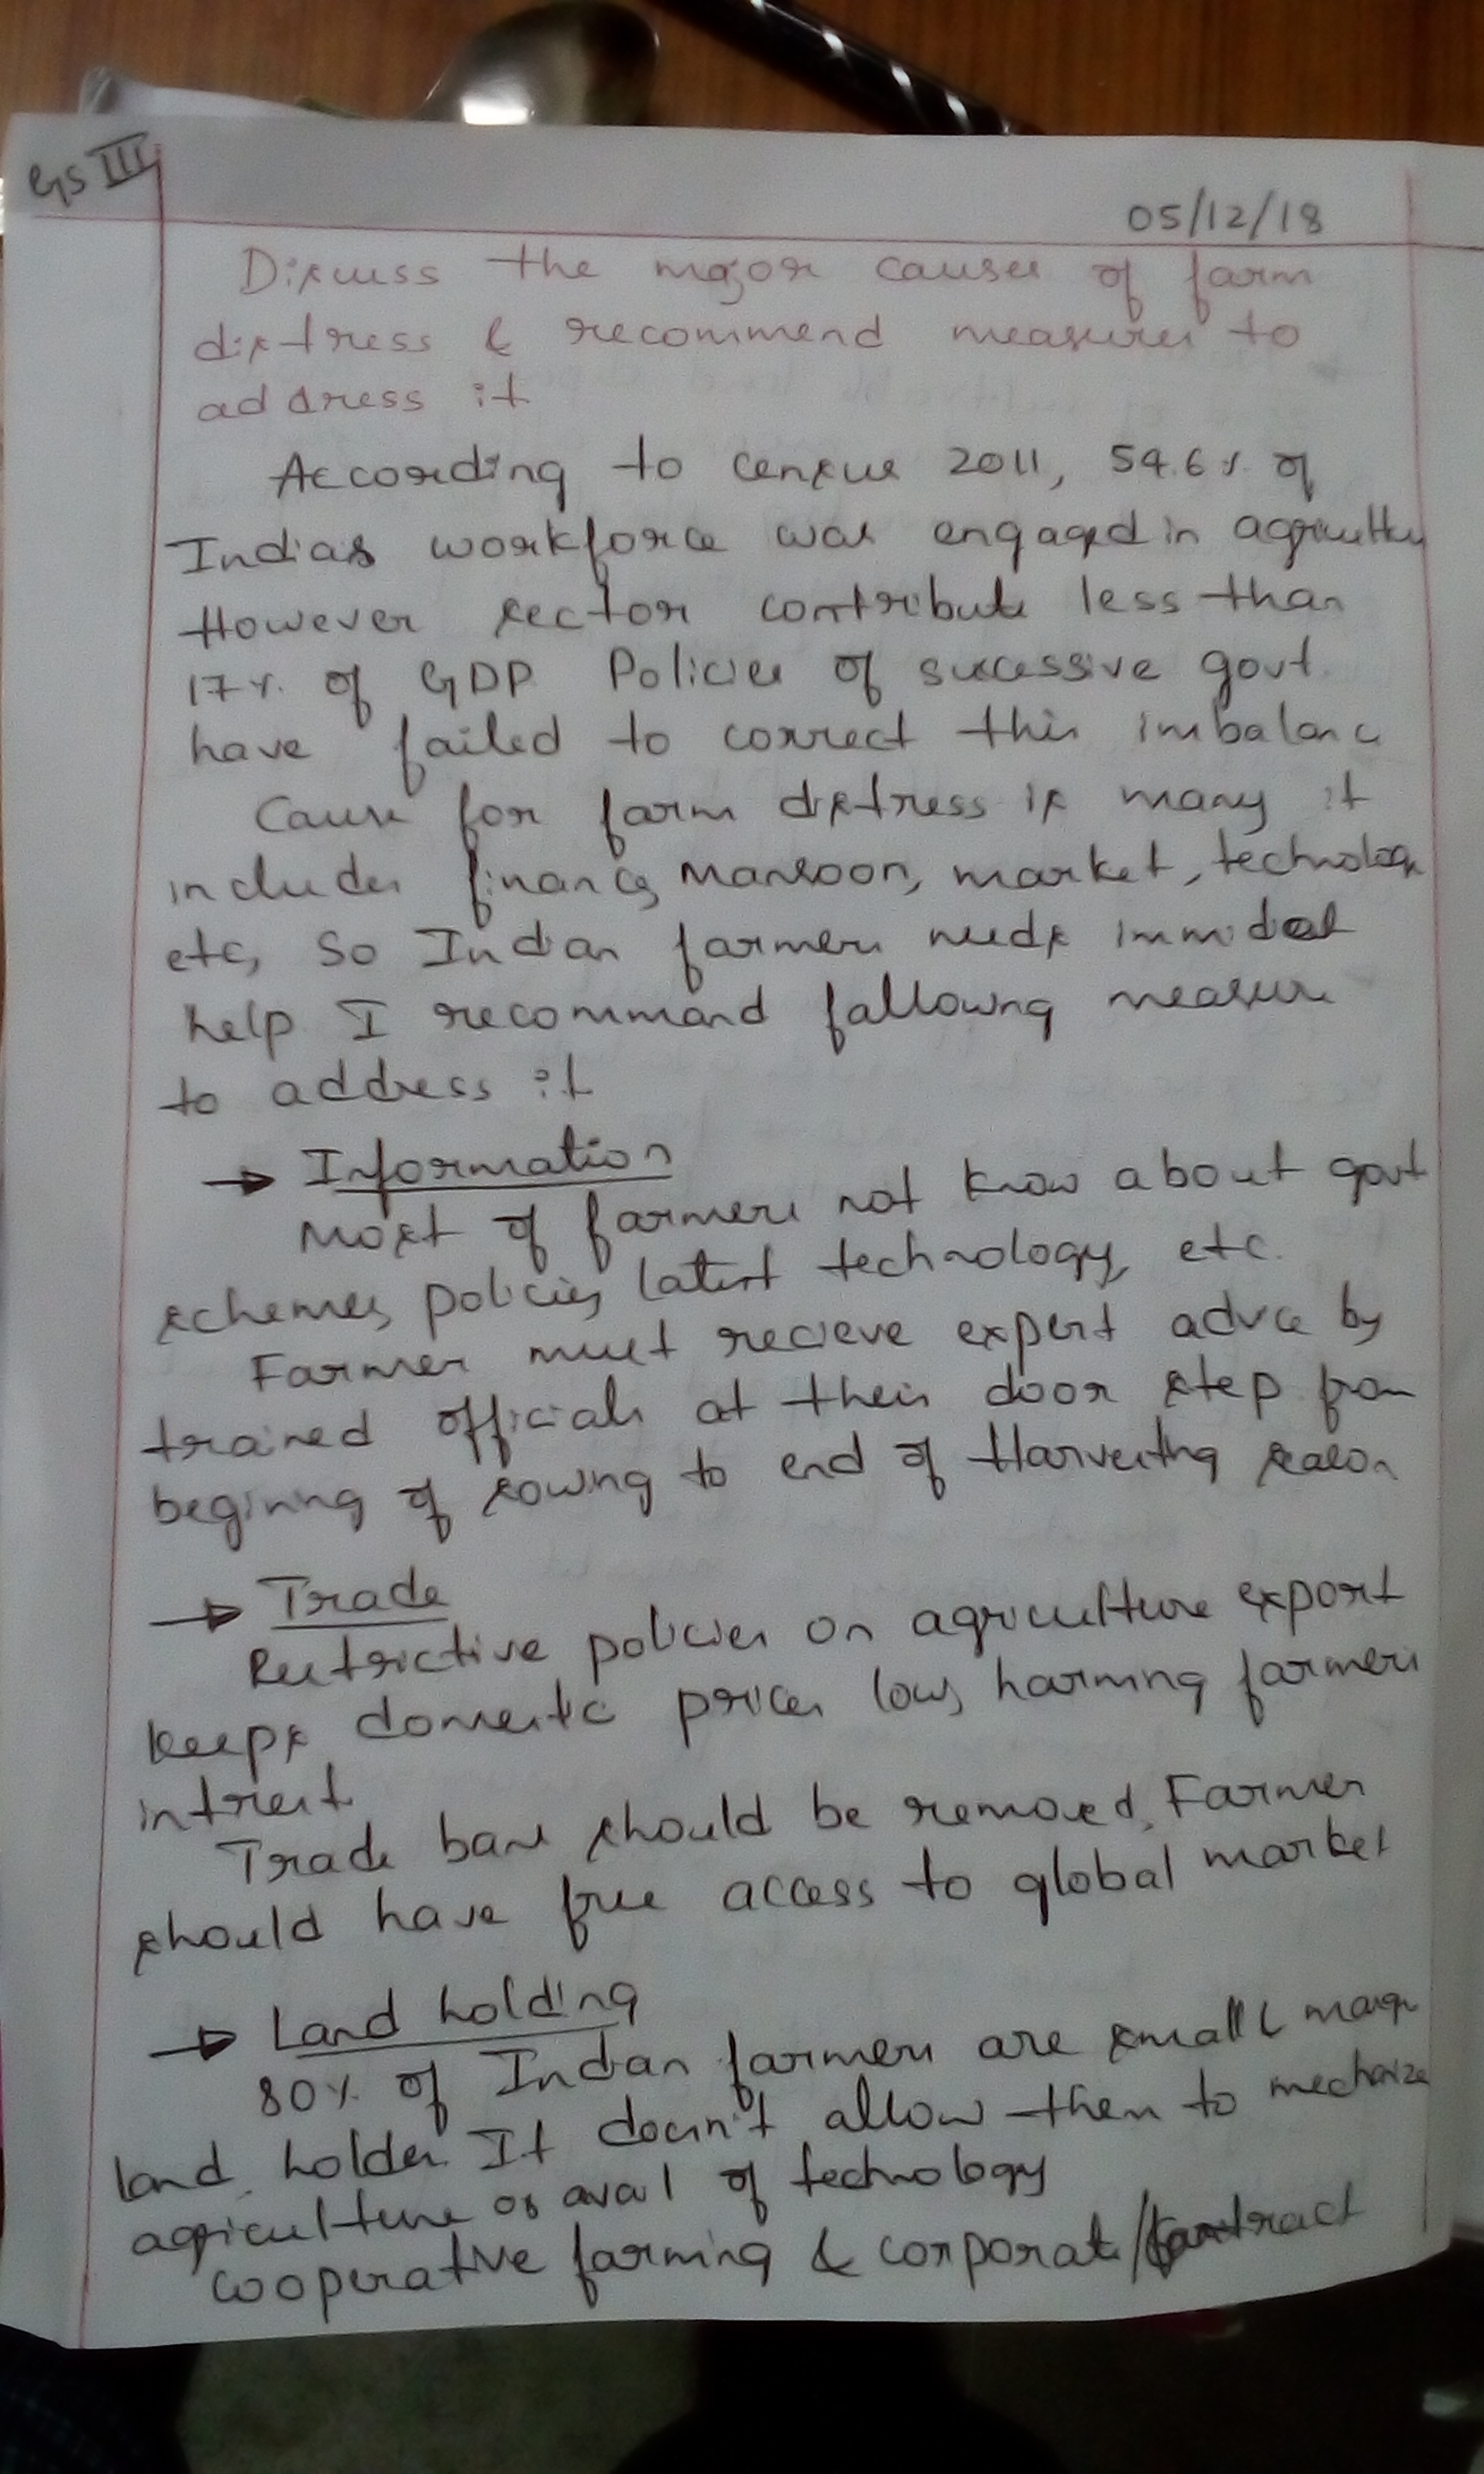 GS III
05/12/18
Discuss the major causes of farm
distress & recommend measures to
address it
According to census 2011, 54.6% of
Indias workforce was engaged in agriculture
However sector contribute less than
17% of GDP. Policies of sucessive govt.
have failed to correct this imbalance
Cause for farm distress is many it
includes finance, Mansoon, market, technology
etc, So Indian farmers needs immidiat
help I recommand fallowing measure
to address it
→ Information
Most of farmers not know about govt
schemes, policies, latest technology, etc.
Farmer must recieve expert advice by
trained officials at their door step from
begining of sowing to end of Harvesting season
→ Trade
Restrictive policies on agriculture export
keeps domestic prices low, harming farmers
intrest.
Trade bans should be removed, Farmer
should have free access to global market
→ Land holding
80% of Indian farmers are small &
land holder. It doesn't allow them to mechanize
agriculture or avail of technology
Cooperative farming & corporate/contract